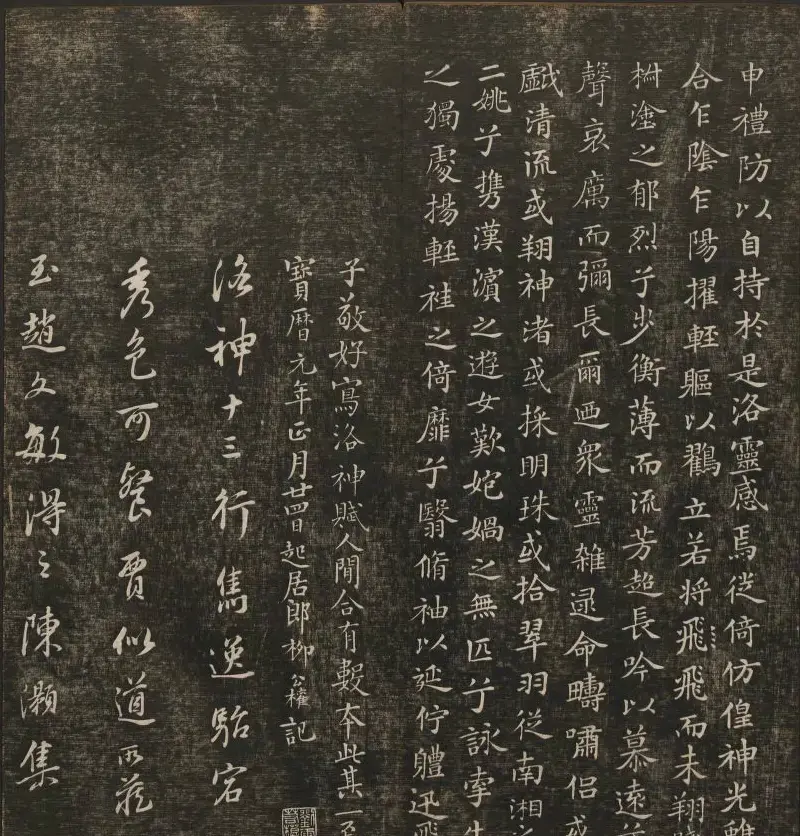 申禮防以自持於是洛靈感焉徙倚仿偟神光
合乍陰乍陽擢輕軀以鸛立若將飛飛而未翔
椒塗之郁烈兮步衡薄而流芳超長吟以慕遠
聲哀厲而彌長爾迺衆靈雜遝命疇嘯侶或
戲清流或翔神渚或採明珠或拾翠羽從南湘之
二姚兮攜漢濱之遊女歎媧之無匹兮詠牽牛
之獨處揚輕袿之倚靡兮翳脩袖以延佇軆迅飛
子敬好寫洛神賦人間合有數本此其一焉
寶曆元年正月廿四日起居郎柳公權記
洛神十三行雋逸駘宕
秀色可餐賈似道所藏
玉趙文敏得之陳灝集